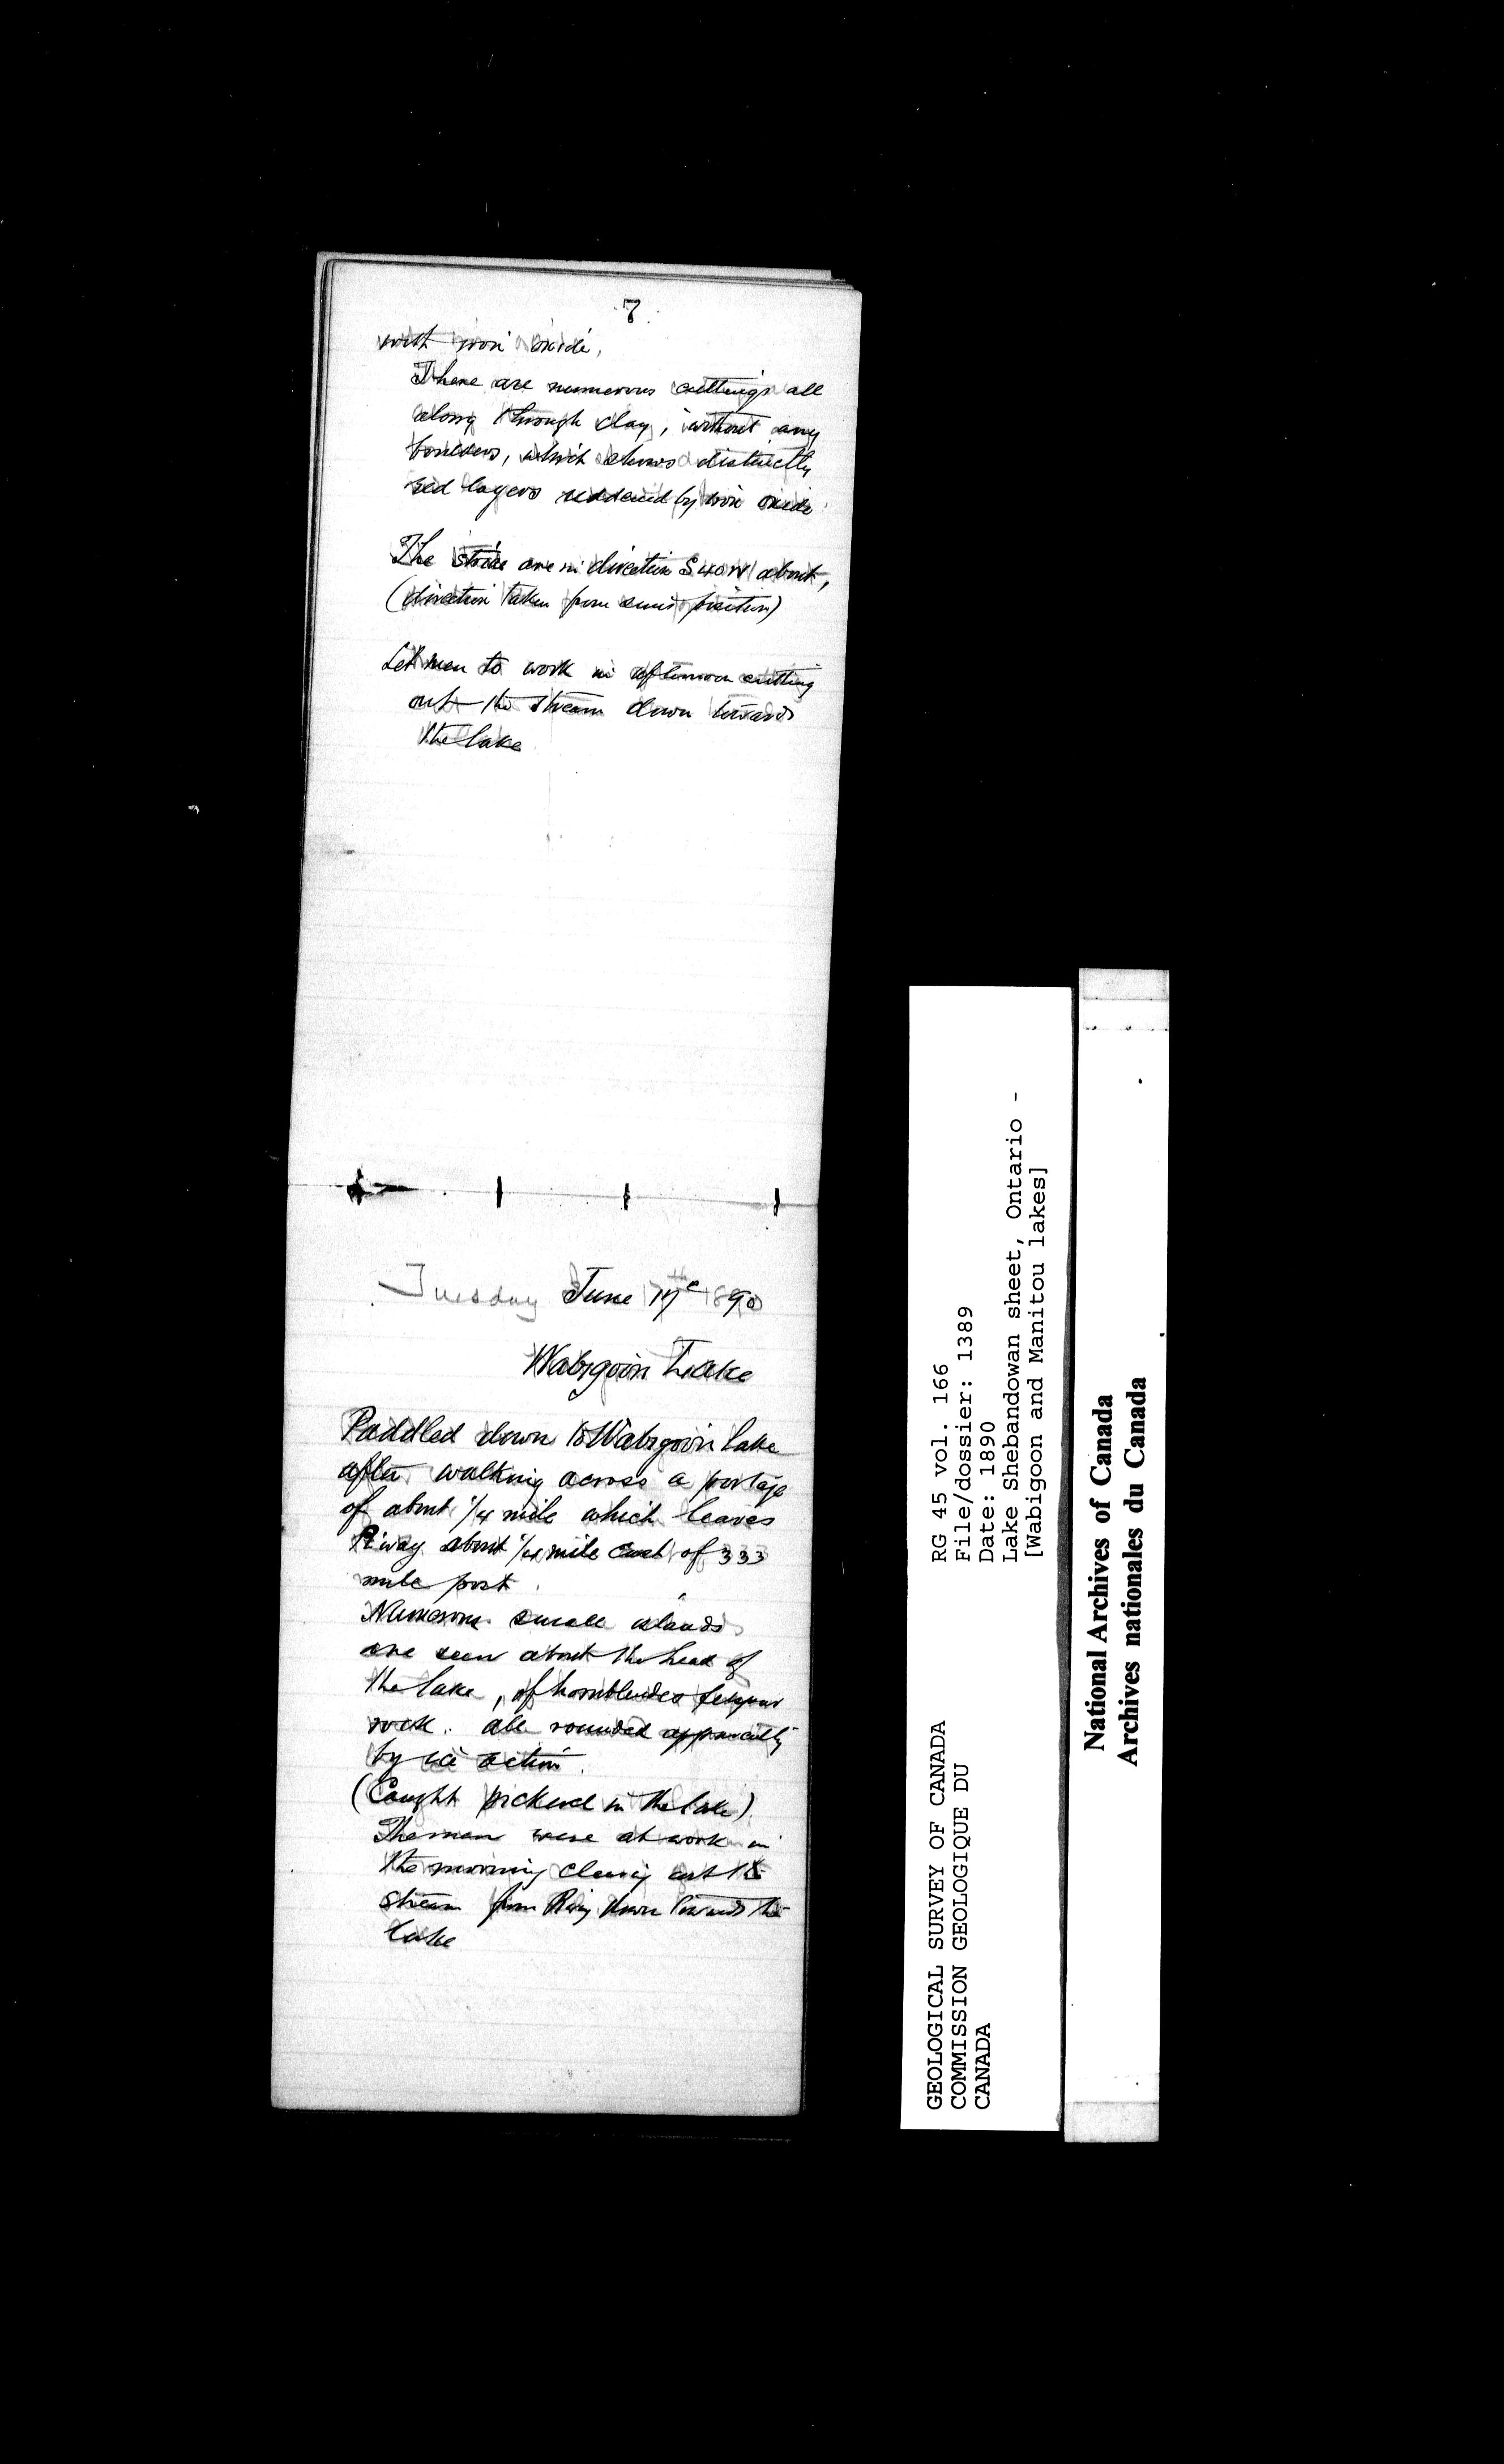 7
with iron oxide,
There are numerous cuttings all
along through clay, without any
boulders, which shows distinctly
red layers reddened by iron oxide
The striae are in direction S 40 W about,
(direction taken from suns position)
Set men to work in afternoon cutting
out the stream down towards
the lake
Tuesday June 17th 1890
Wabigoon Lake
Paddled down to Wabigoon lake
after walking across a portage
of about 1/4 mile which leaves
R'way about 1/4 mile East of 333
mile post.
Numerous small islands
are seen about the head of
the lake, of hornblendes felspar
rock. all rounded apparently
by ice action.
(Caught pickerel in the lake).
The men were at work in
the morning clearing out the
stream from Rway down towards the
lake
GEOLOGICAL SURVEY OF CANADA
COMMISSION GEOLOGIQUE DU
CANADA
RG 45 vol. 166
File/dossier: 1389
Date: 1890
Lake Shebandowan sheet, Ontario -
[Wabigoon and Manitou lakes]
National Archives of Canada
Archives nationales du Canada